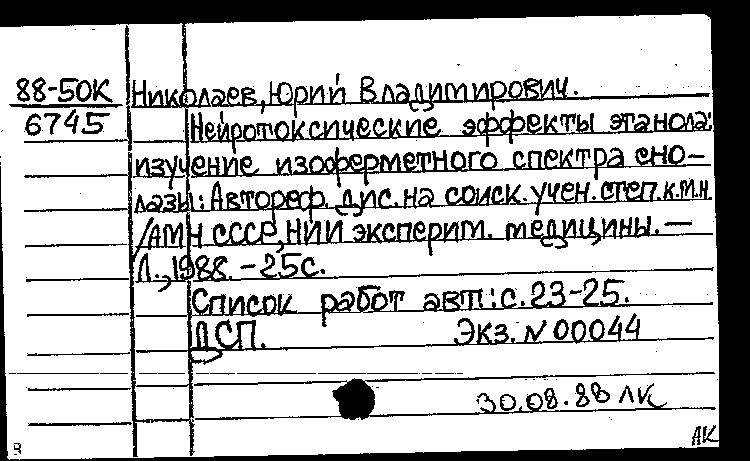 88-50К
6745
Николаев, Юрий Владимирович.
Нейротоксические эффекты этанола:
изучение изоферметного спектра ено-
лазы: Автореф. дис. на соиск. учен. степ. к.м.н.
/АМН СССР, НИИ эксперим. медицины. —
Л., 1988. - 25с.
Список работ авт.: с. 23-25.
ДСП. Экз. N 00044
30.08.88 ЛК
АК